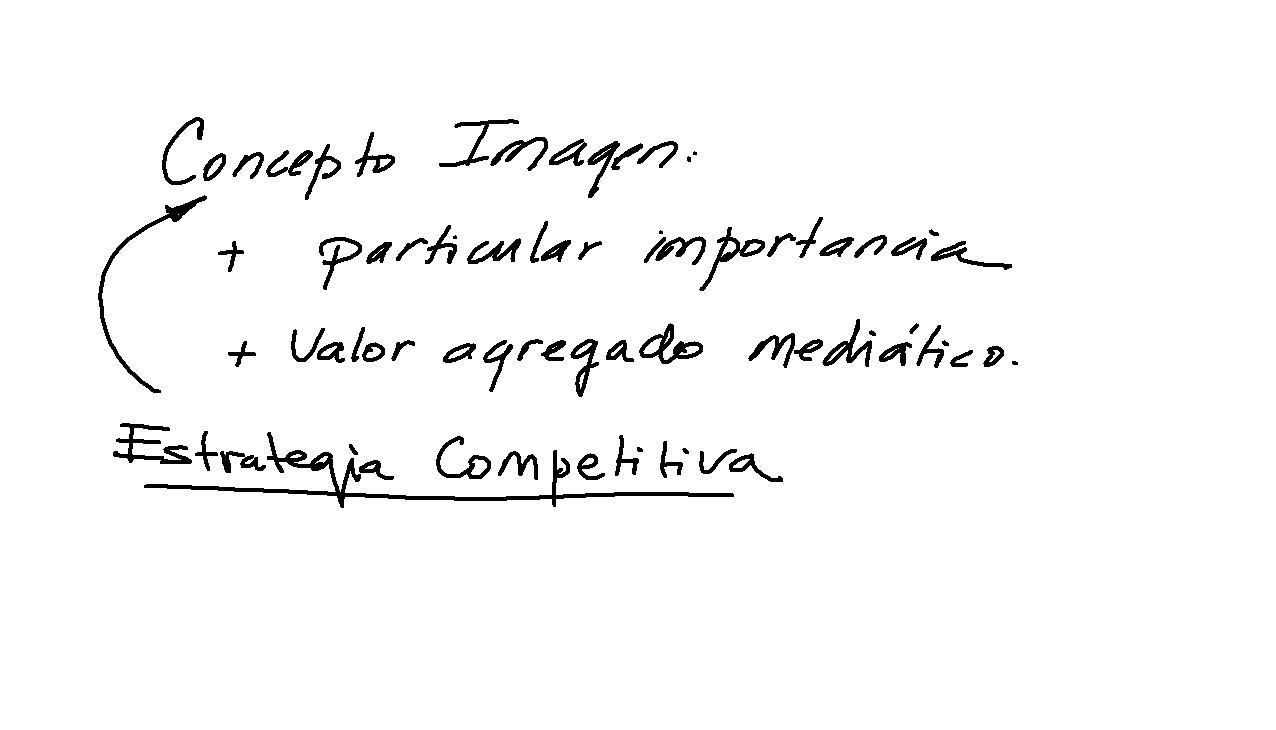 Concepto Imagen.
+ particular importancia
+ Valor agregado mediático.
Estrategia Competitiva